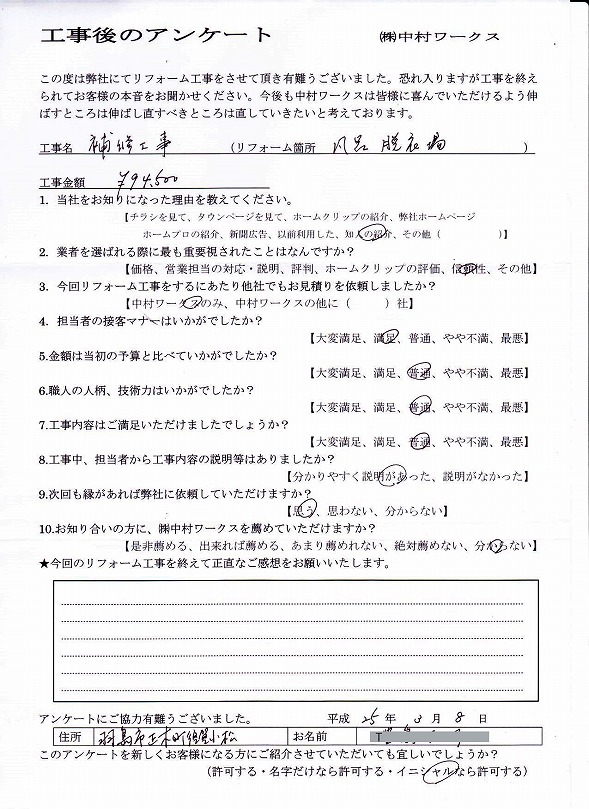 工事後のアンケート　㈱中村ワークス
この度は弊社にてリフォーム工事をさせて頂き有難うございました。恐れ入りますが工事を終え
られてお客様の本音をお聞かせください。今後も中村ワークスは皆様に喜んでいただけるよう伸
ばすところは伸ばし直すべきところは直していきたいと考えております。
工事名　補修工事　（リフォーム箇所　風呂 脱衣場　）
工事金額　¥94,500
1. 当社をお知りになった理由を教えてください。
【チラシを見て、タウンページを見て、ホームクリップの紹介、弊社ホームページ
ホームプロの紹介、新聞広告、以前利用した、知人の紹介、その他（　　　）】
2. 業者を選ばれる際に最も重要視されたことはなんですか？
【価格、営業担当の対応・説明、評判、ホームクリップの評価、信頼性、その他】
3. 今回リフォーム工事をするにあたり他社でもお見積りを依頼しましたか？
【中村ワークスのみ、中村ワークスの他に（　　）社】
4. 担当者の接客マナーはいかがでしたか？
【大変満足、満足、普通、やや不満、最悪】
5.金額は当初の予算と比べていかがでしたか？
【大変満足、満足、普通、やや不満、最悪】
6.職人の人柄、技術力はいかがでしたか？
【大変満足、満足、普通、やや不満、最悪】
7.工事内容はご満足いただけましたでしょうか？
【大変満足、満足、普通、やや不満、最悪】
8.工事中、担当者から工事内容の説明等はありましたか？
【分かりやすく説明があった、説明がなかった】
9.次回も縁があれば弊社に依頼していただけますか？
【思う、思わない、分からない】
10.お知り合いの方に、㈱中村ワークスを薦めていただけますか？
【是非薦める、出来れば薦める、あまり薦めれない、絶対薦めない、分からない】
★今回のリフォーム工事を終えて正直なご感想をお願いいたします。
アンケートにご協力有難うございました。　平成 25 年 3 月 8 日
住所　羽島市正木町　小松　お名前　T
このアンケートを新しくお客様になる方にご紹介させていただいても宜しいでしょうか？
（許可する・名字だけなら許可する・イニシャルなら許可する）